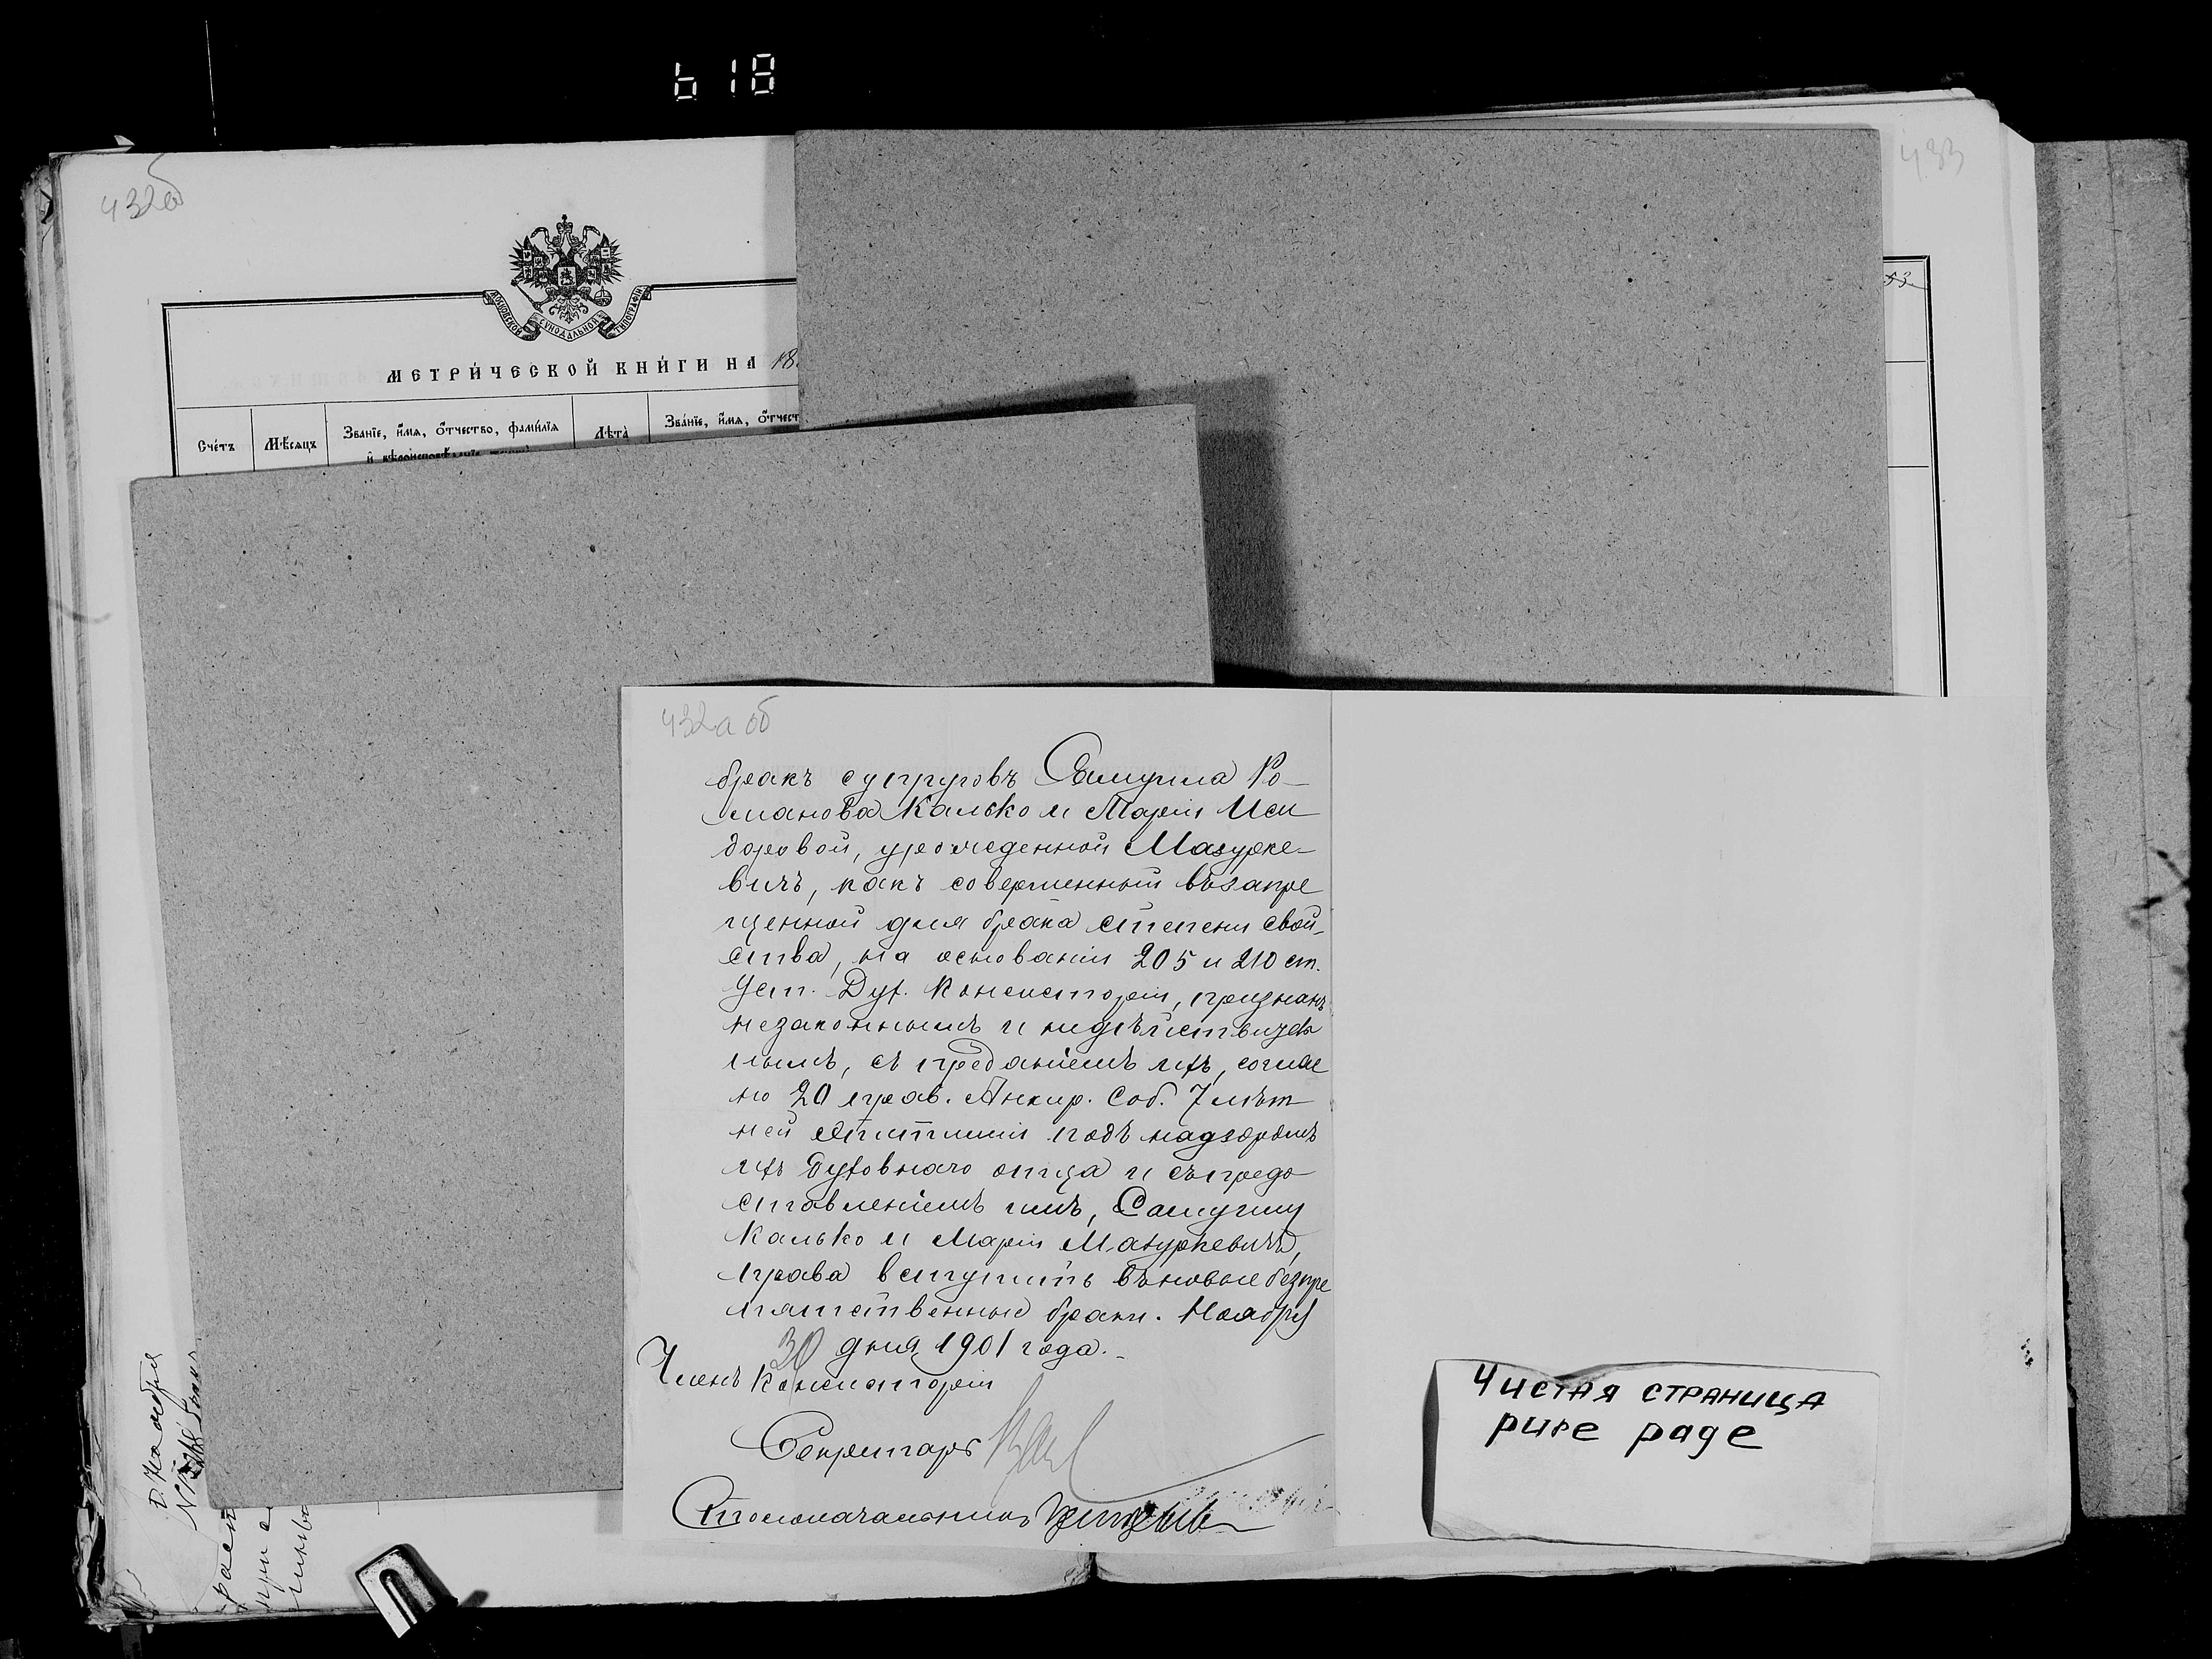 618
432об
433
МОСКОВСКОЙ СѴНОДАЛЬНОЙ ТИПОГРАФІИ
МЕТРИ́ЧЕСКОЙ КНИ́ГИ НА 18
Сче́тъ
Мѣ́сяцъ
Зва́нїе, и҆́мя, о҆́тчество, фами́лїя
Лѣта̀
Зва́нїе, и҆́мя, о҆́тчест
432а об
бракъ супруговъ Самуила Ро-
манова Калько и Маріи Иси
доровой, урожденной Мазурке-
вичъ, какъ совершенный въ запре
щенной для брака степени свой-
ства, на основаніи 205 и 210 ст.
Уст. Дух. Консисторіи, признанъ
незаконнымъ и недѣйствитель
нымъ, съ преданіемъ ихъ, соглас
но 20 прав. Анкир. Соб. 7 лѣт
ней епитиміи подъ надзоромъ
ихъ духовнаго отца и съ предо
ставленіемъ имъ, Самуилу
Калько и Маріи Мазуркевичъ,
права вступить въ новые безпре
пятственные браки. Ноября
30 дня 1901 года.-
Членъ Консисторіи
Секретарь
Столоначальникъ
Чистая страница
pure page